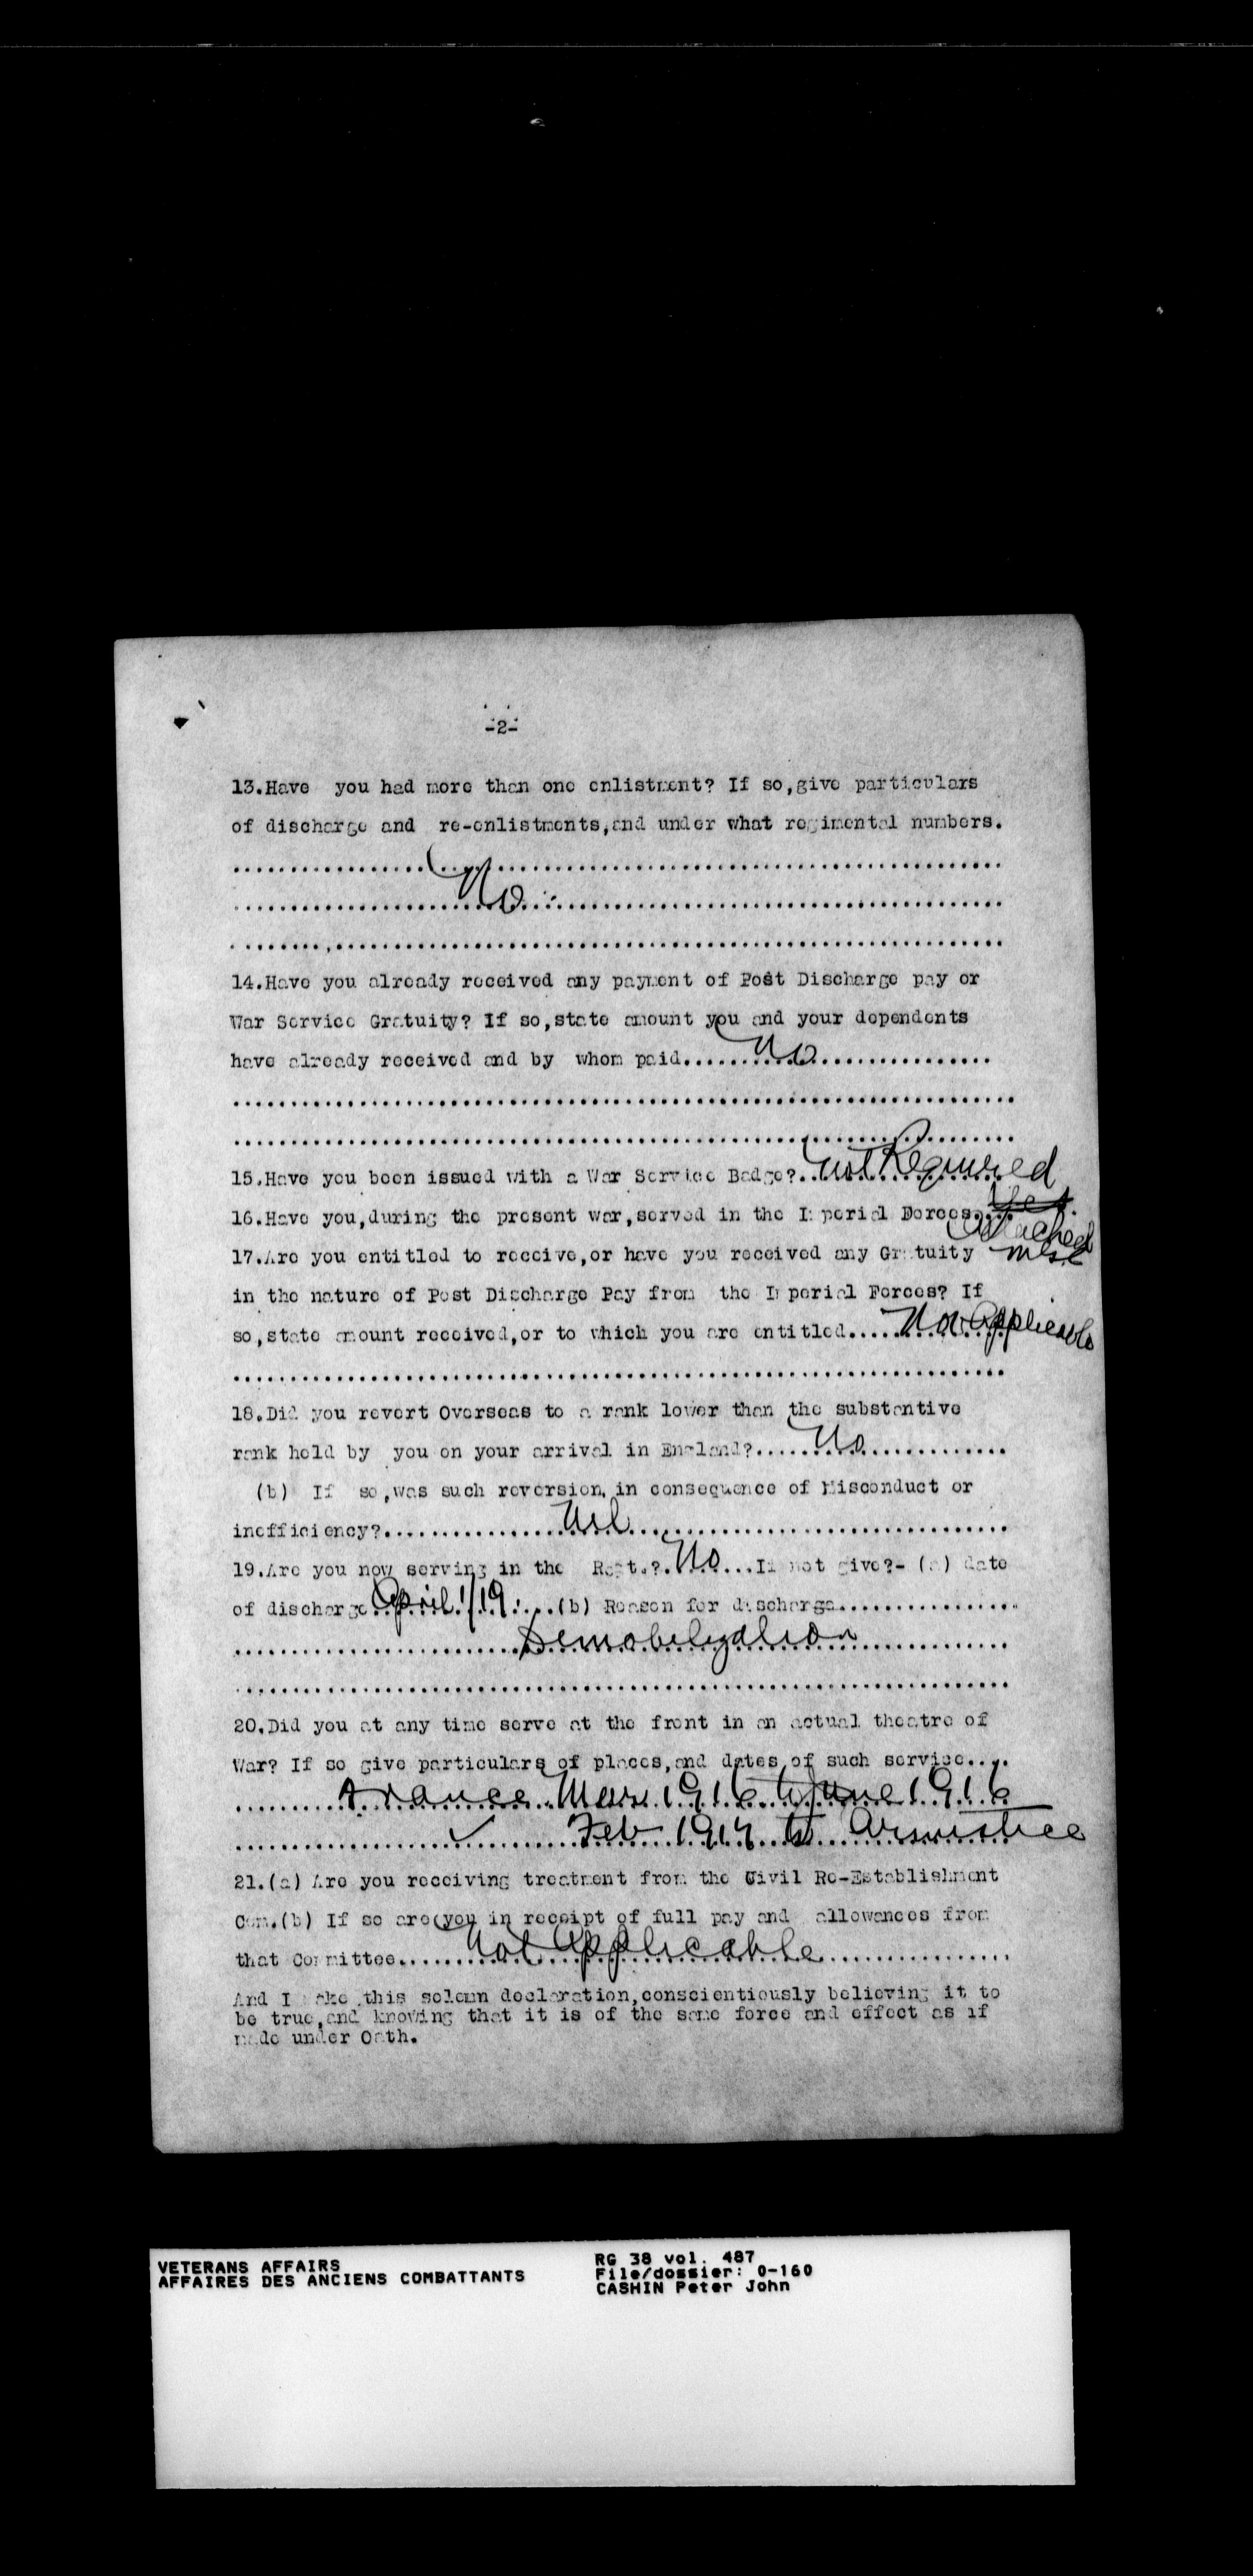 -2-
13.Have you had more than one enlistment? If so,give particulars
of discharge and re-enlistments,and under what regimental numbers.
No
14.Have you already received any payment of Post Discharge pay or
War Service Gratuity? If so,state amount you and your dependents
have already received and by whom paid......No................
15.Have you been issued with a War Service Badge?..not Required
16.Have you,during the present war,served in the Imperial Forces....Yes
attached
17.Are you entitled to receive,or have you received any Gratuity
in the nature of Post Discharge Pay from the Imperial Forces? If
so,state amount received,or to which you are entitled....Not Applicable
18.Did you revert Overseas to a rank lower than the substantive
rank held by you on your arrival in England?.....No..............
(b) If so,was such reversion in consequence of Misconduct or
inefficiency?................Nil................................
19.Are you now serving in the Regt.?.No....If not give?-(a) date
of discharge.April 1/19.....(b) Reason for discharge................
Demobilyzation
20.Did you at any time serve at the front in an actual theatre of
War? If so give particulars of places,and dates of such service....
France Mar 1916 to June 1916
Feb 1917 to Armistice
21.(a) Are you receiving treatment from the Civil Re-Establishment
Com.(b) If so are you in receipt of full pay and allowances from
that Committee......Not Applicable................
And I make this solemn declaration,conscientiously believing it to
be true,and knowing that it is of the same force and effect as if
made under Oath.
VETERANS AFFAIRS
AFFAIRES DES ANCIENS COMBATTANTS
RG 38 vol. 487
File/dossier: 0-160
CASHIN Peter John